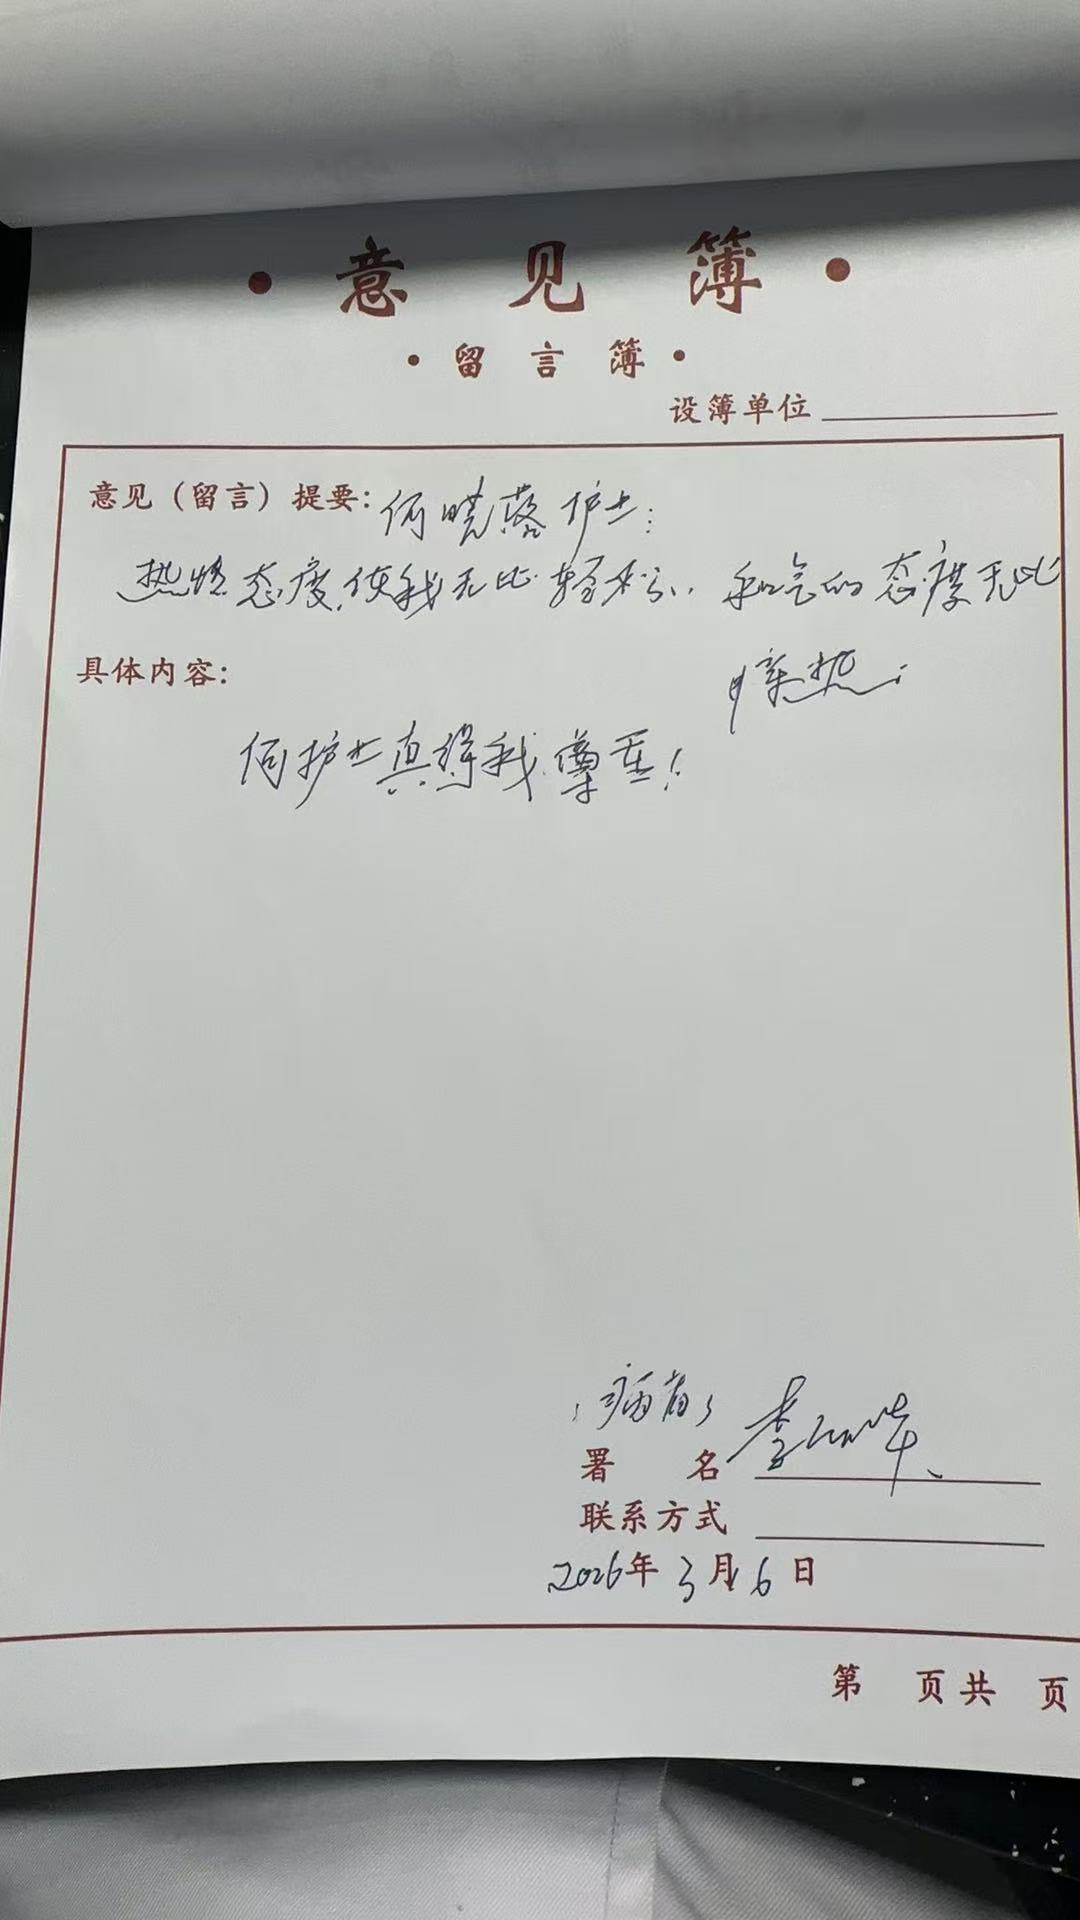 ·意见簿·
·留言簿·
设簿单位
意见（留言）提要：何晓蓉护士：
热情态度，使我无比轻松、和气的态度无比
亲热；
具体内容：
何护士真得我尊重！
（病者）
署 名 李
联系方式
2026年3月6日
第 页共 页